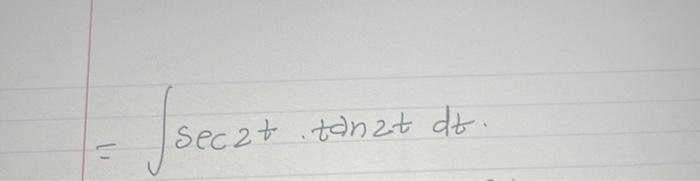 = ∫ sec2t . tan2t dt.